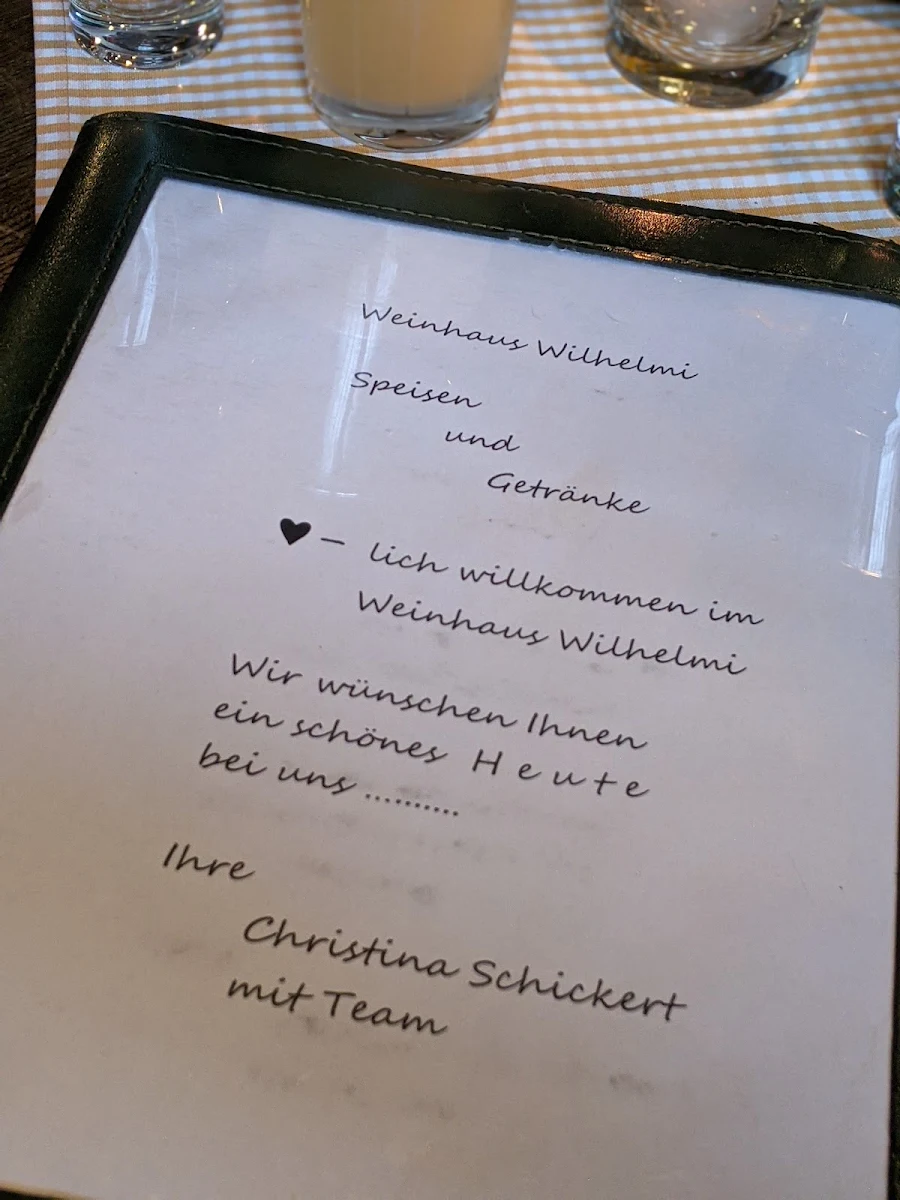 Weinhaus Wilhelmi
Speisen
und
Getränke
♥ – lich willkommen im
Weinhaus Wilhelmi
Wir wünschen Ihnen
ein schönes H e u t e
bei uns ..........
Ihre
Christina Schickert
mit Team